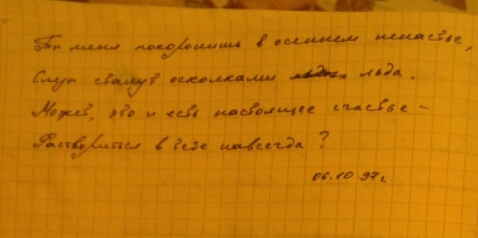 Ты меня похоронишь в осеннем ненастье,
станут осколками льда.
Может, это и есть настоящее счастье –
Раствориться в тебе навсегда?
06.10 97 г